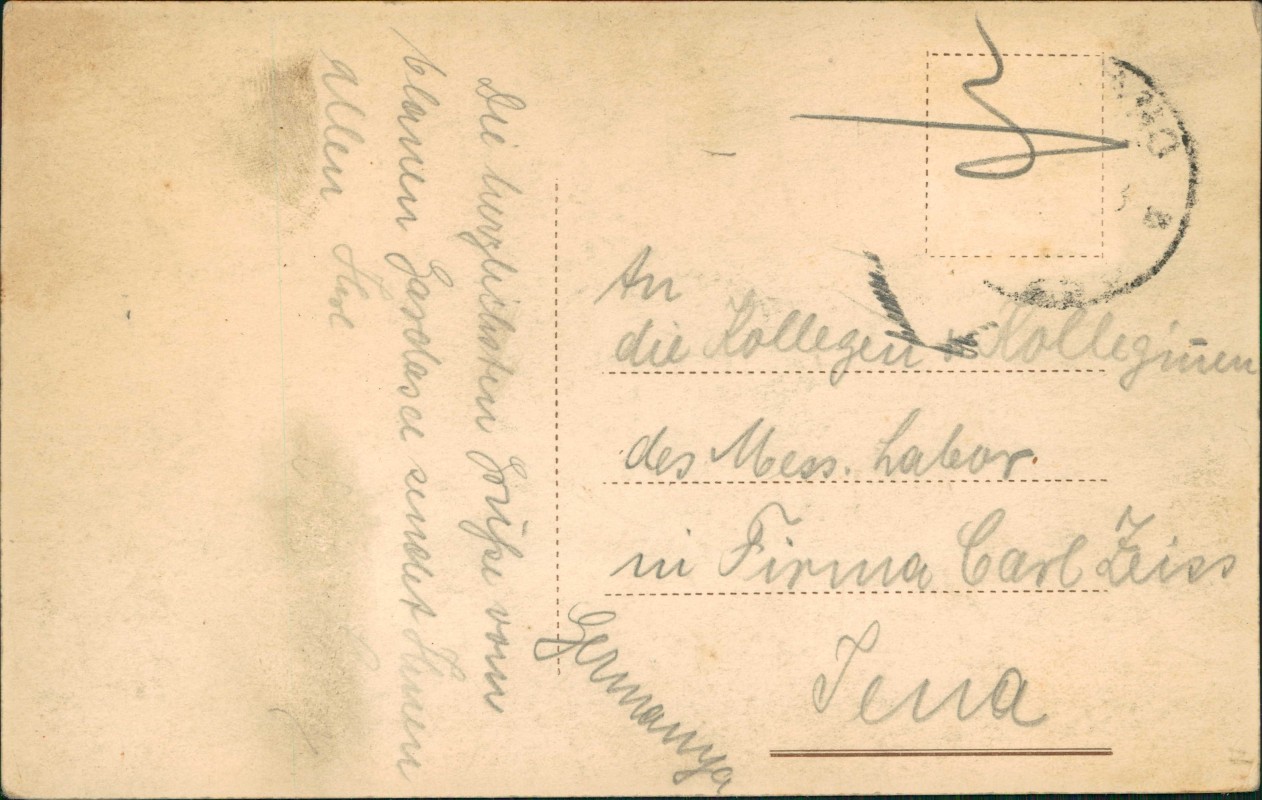 Die herzlichsten Grüße vom
blauen Gardasee sendet Ihnen
allen Ihre
An
die Kollegen u. Kolleginnen
des Mess. Labor.
in Firma Carl Zeiss
Jena
Germanya